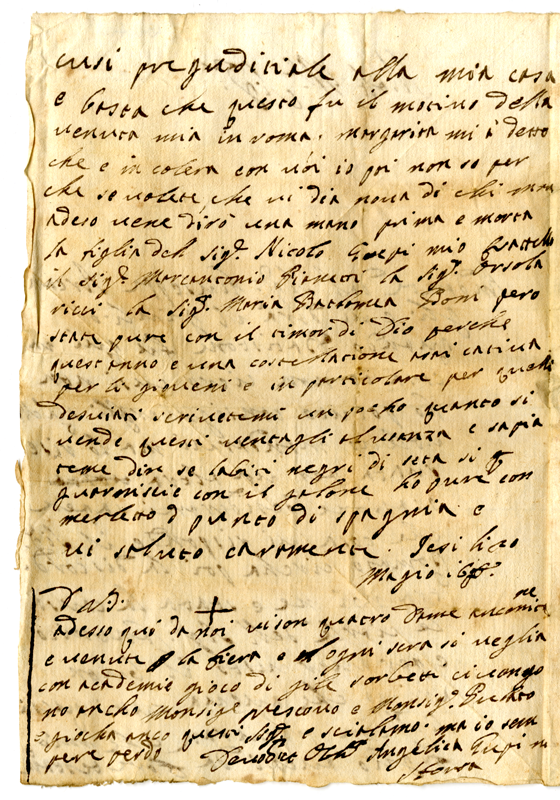 cusi pregiuditiale alla mia casa
e basta che questo fu il motivo della
venuta mia in roma. Margarita mi à detto
che e in colera con voi io poi non so per
che se volete che vi dia nova di chi more
adeso vene dirò una mano prima e morta
la figlia del Sigr. Nicolo Guepi mio fratello
il Sigr. Marcantonio Pianetti la Sigra. Orsola
ricci la Sigra. Maria Bartlomea Boni pero
state pure con il timor di Dio perche
quest anno e una costellatione assai cativa
per li gioveni e in particolare per quelli
desviati scrivetemi un pocho quanto si
vende questi ventagli al usanza e sapia
teme dire se labiti negri di seta si
guarniscie con il galone ho pure con
merletto d punto di spagnia e
vi saluto caramente. Jesi li 20
Magio
adesso qui da noi vi son quatro Dame anconitane
e venute la fiera e ogni sera si veglia
con academie gioco di gile sorbetti ci vengo
no ancho Monsige vescovo e Monsigr.
e giocha anco questi Sigri e scialamo. ma io sem
pere perdo Angelica Guepi